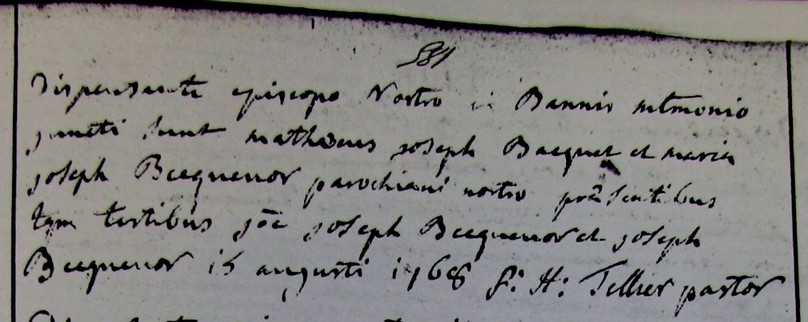 581
Dispensante episcopo Nostro in Bannis mtmonio
juncti sunt mathæus joseph Bacquet et maria
joseph Becquevor parochiani nostri præsentibus
tqm testibus joē joseph Becquevor et joseph
Becquevor 15 augusti 1768 f: H: Tellier pastor